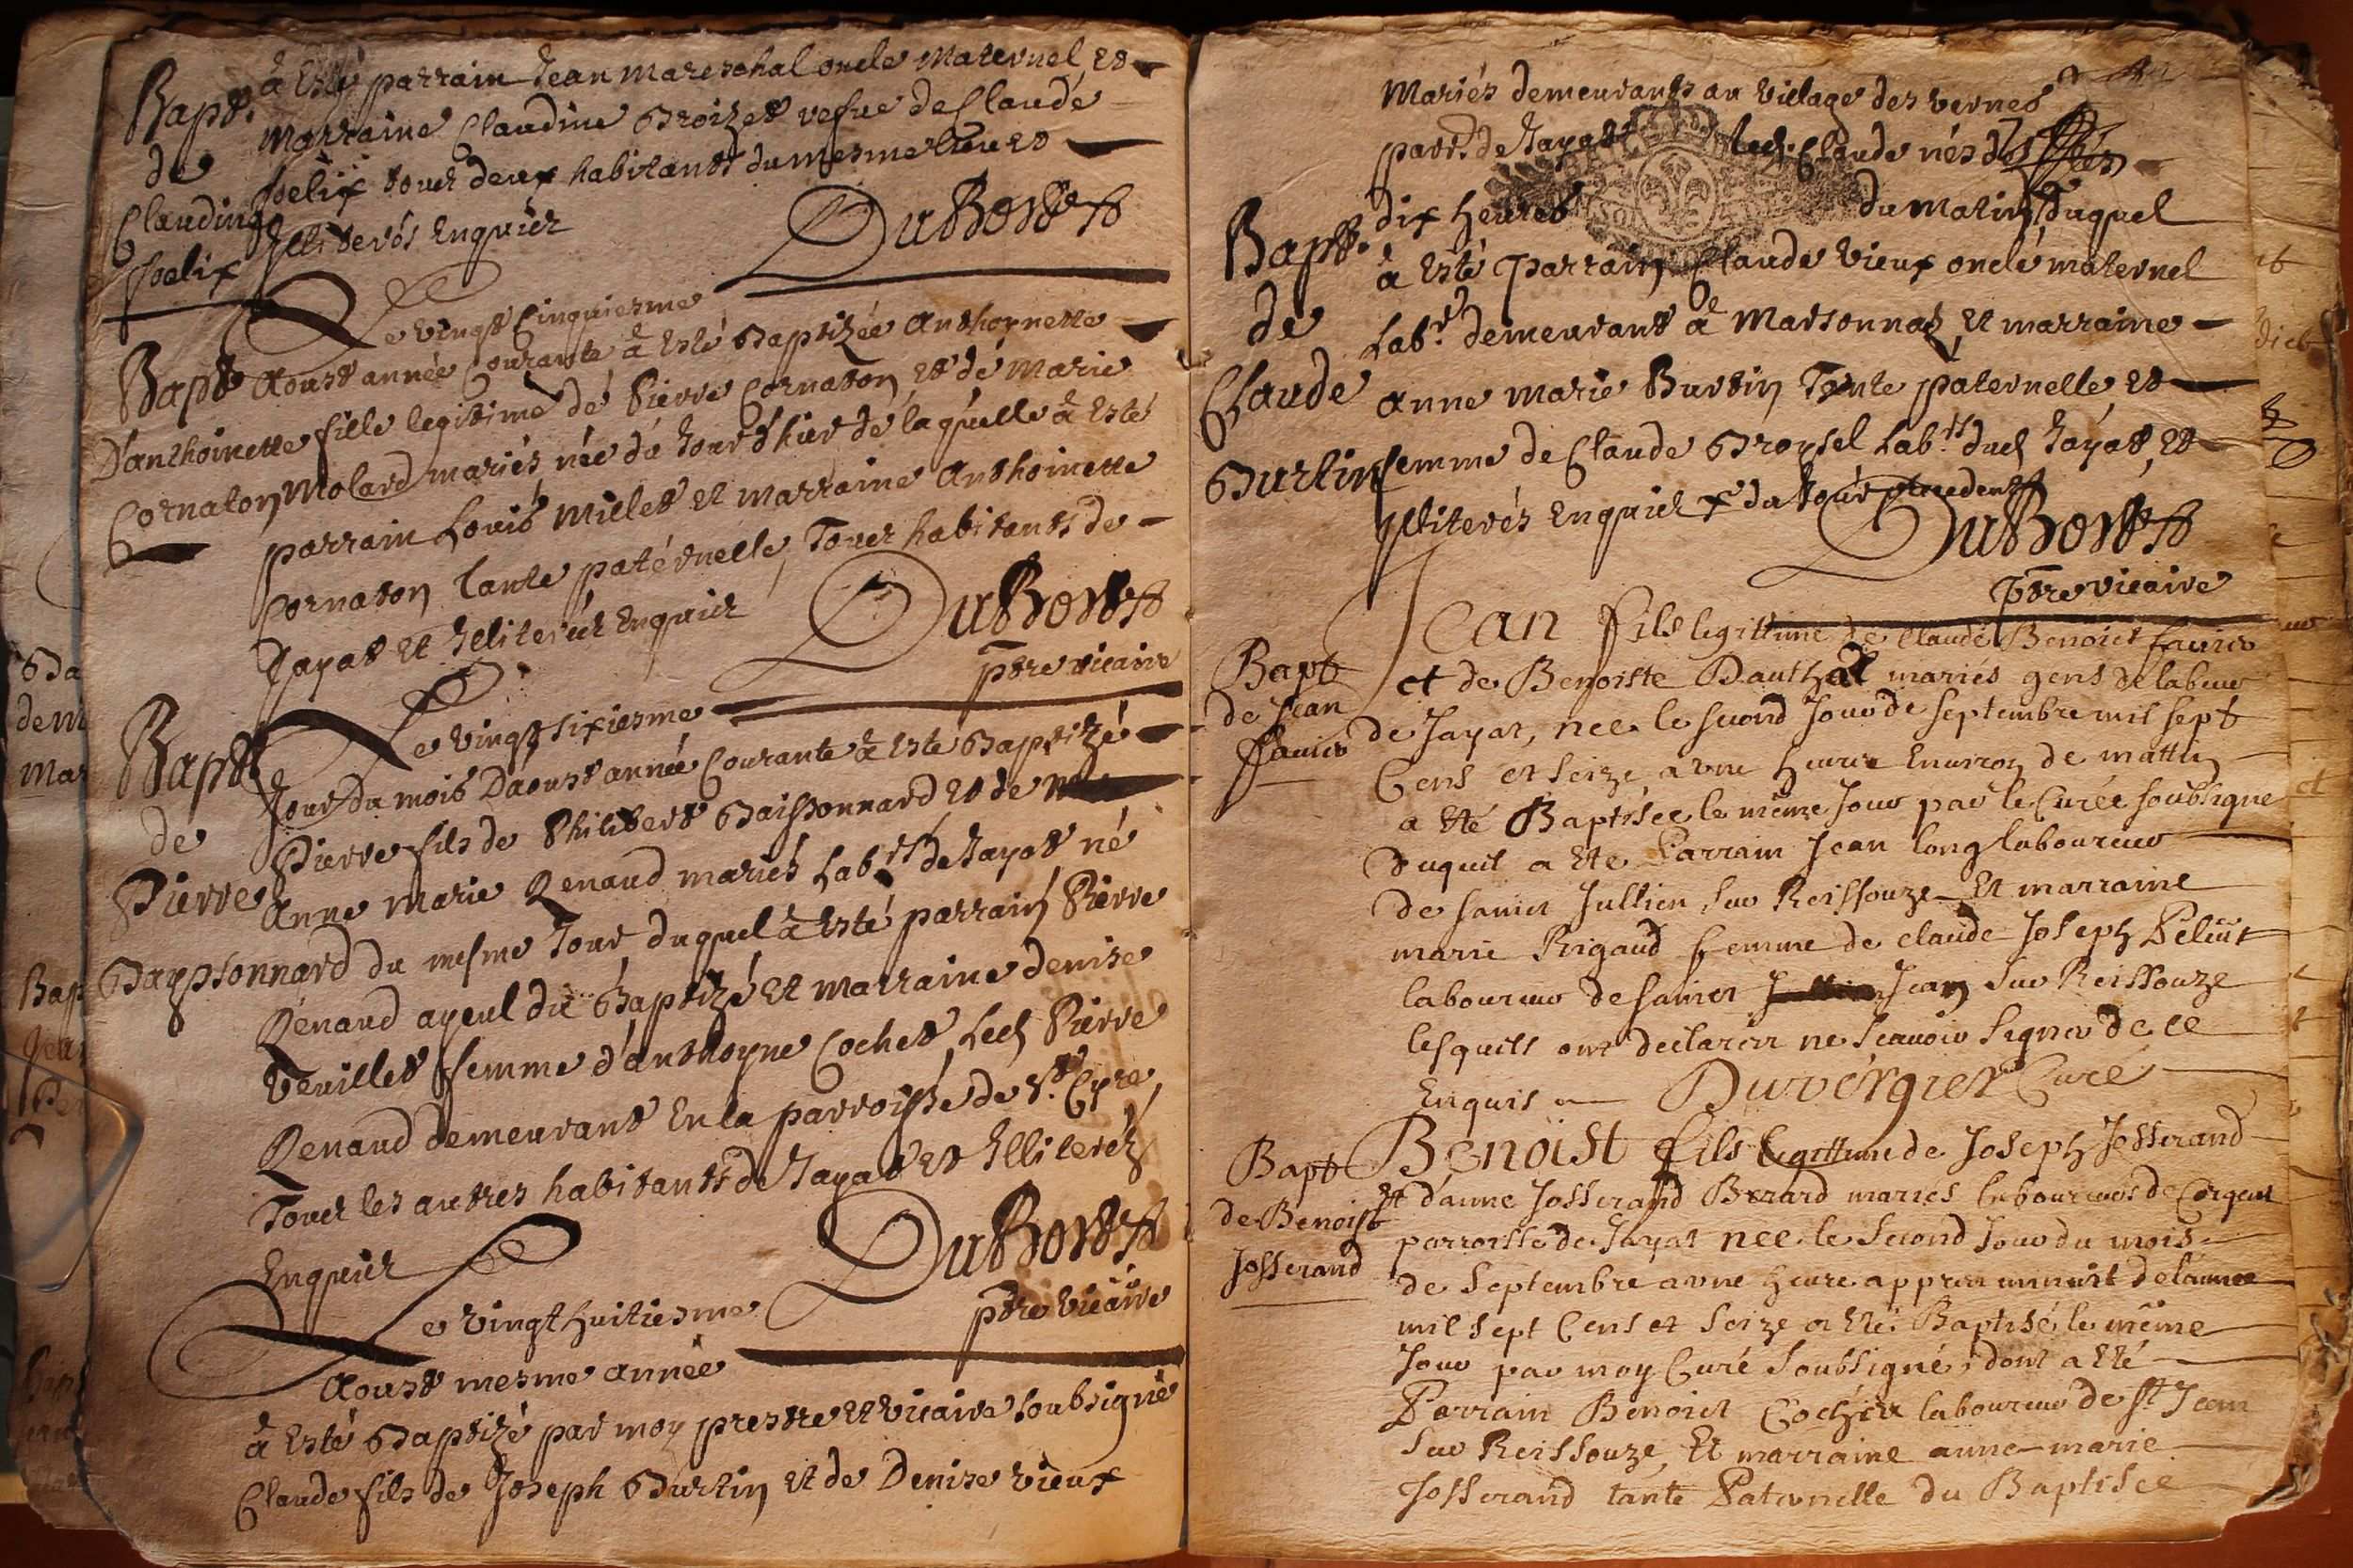 Bapt.
de
Claudine
felix
à Esté parrain Jean Mareschal oncle Maternel, et
Marraine Claudine Broizet vefue de Claude
felix touts deux habitants du mesme lieu et
Illiterés Enquis
DuBost
Le vingt Cinquiesme
Bapt
D'anthoinette
Cornaton
Aoust année Courante à Esté Baptizée Anthoynette
fille legitime de Pierre Cornaton, et de Marie
Molard mariés née de Jourd'huy de laquelle à Esté
parrain Louis Millet et marraine Anthoinette
Cornaton tante paternelle, Touts habitants de
Jayat et Illiterés Enquis
DuBost
ptre vicaire
Le vingt sixiesme
Bapt
de
Pierre
Bayssonnard
Jour du mois D'aoust année Courante à Esté Baptizé
Pierre fils de Philibert Baissonnard et de
Anne Marie Renaud mariés Lab.rs de Jayat né
du mesme Jour, duquel à Esté parrain Pierre
Renaud ayeul du Baptizé et marraine denise
Veuillet femme d'anthoyne Cochet, Led. Pierre
Renaud demeurant En la parroisse de St. Cyre,
Touts les autres habitants de Jayat et Illiterés
Enquis
DuBost
ptre vicaire
Le vingt huitiesme
Aoust mesme année
à Esté Baptizé par moy prestre et vicaire soubsigné
Claude fils de Joseph Burtin et de Denise vieux
Mariés demeurants au village des vernes
parr. de Jayat led. Claude né
dix heures du matin, duquel
Bapt.
de
Claude
Burtin
à Esté Parrain Claude vieux oncle maternel
Lab.r demeurant à Marsonnas, et marraine
anne marie Burtin Tante paternelle, et
femme de Claude Broysel Lab.rs dud. Jayat, et
Illiterés Enquis x du Jour precedent
DuBost
ptre vicaire
Bapt
de Jean
fauier
Jean fils legittime de Claude Benoict fauier
et de Benoiste Dauthal mariés gens de labeur
de Jayat, nee le second Jour de septembre mil sept
Cens et seize a vne heure Enuiron de mattin
a Eté Baptisee le même Jour par le Curée soubsigne
duquil a Eté Parrain Jean long laboureur
de sainct Jullien sur Reissouze Et marraine
marie Rigaud femme de claude Joseph Peluit
laboureur de sainct Jean sur Reissouze
lesquels ont declarer ne scauoir signer de ce
Enquis
Duvergier Curé
Bapt
de Benoist
Josserand
Benoist fils legittime de Joseph Josserand
Et d'anne Josserand Berard mariés laboureurs de Corgent
parroisse de Jayat nee le second Jour du mois
de Septembre a vne heure appres minuit de lannee
mil sept Cens et seize a Eté Baptisé le même
Jour par moy Curé soubsigné, dont a Eté
Parrain Benoict Cochet laboureur de st Jean
sur Reissouze, Et marraine anne-marie
Josserand tante Paternelle du Baptisee